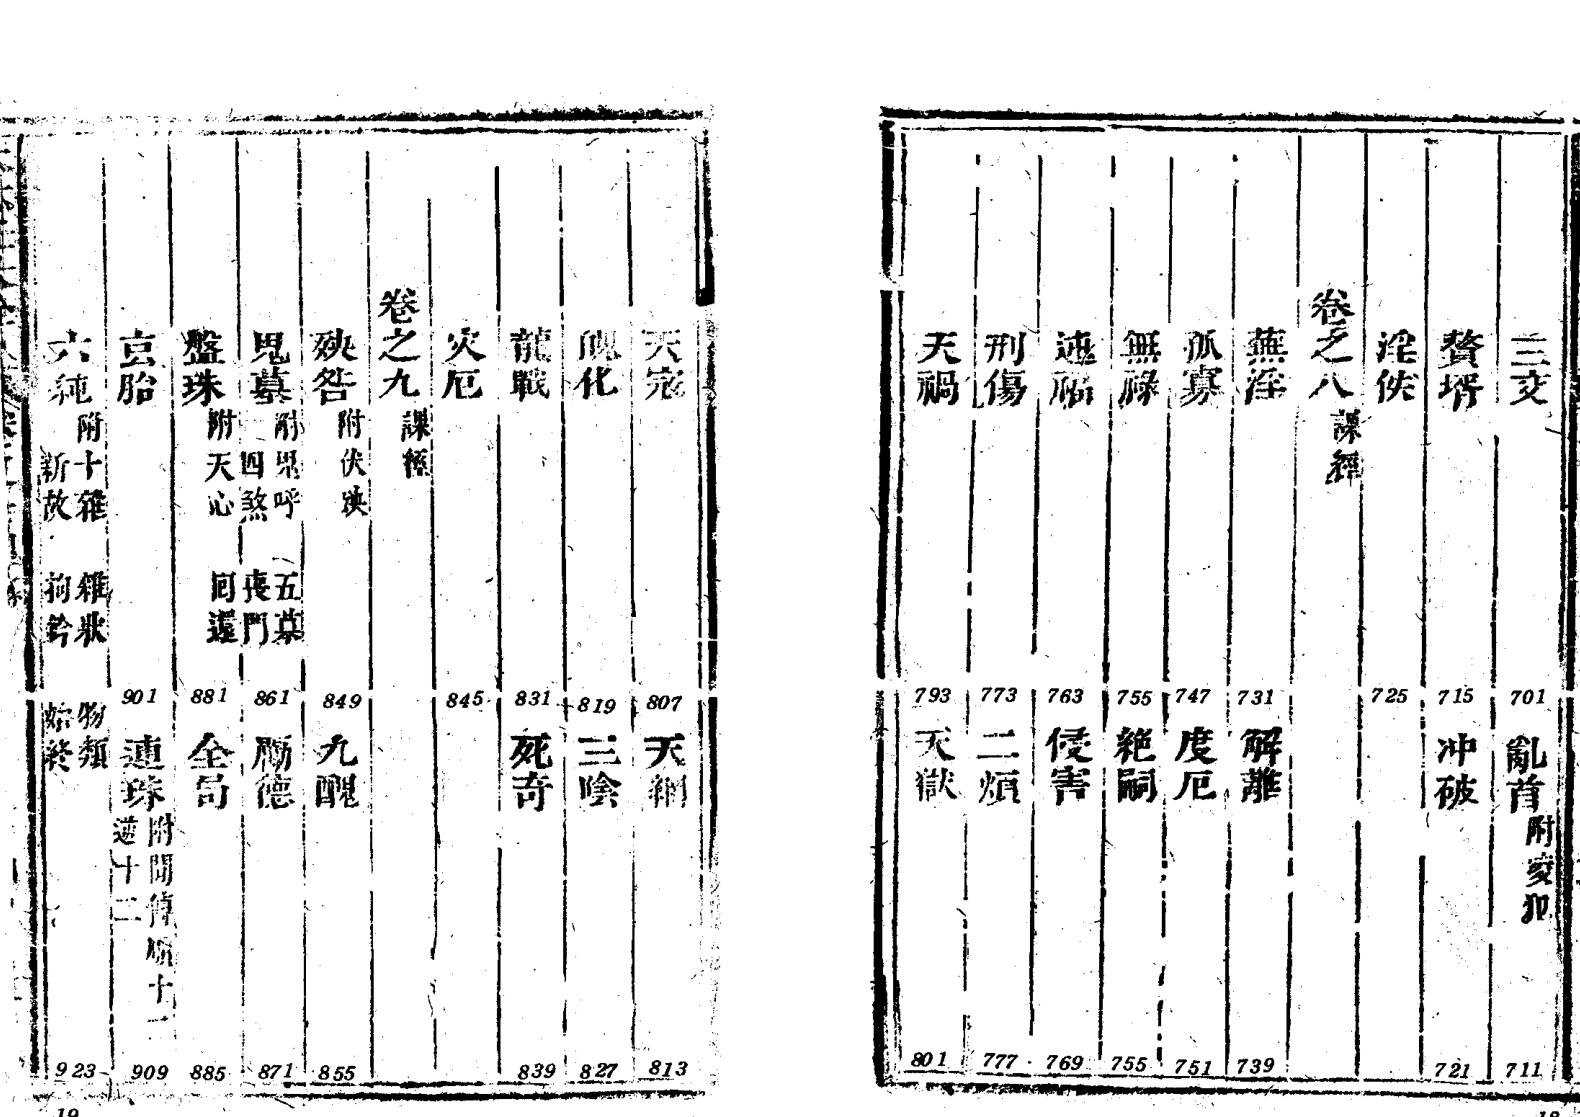 三交 701 亂首 附㚇犯 711
贅壻 715 冲破 721
淫佚 725
卷之八 課經
蕪淫 731 解離 739
孤寡 747 度厄 751
無祿 755 絕嗣 755
迍福 763 侵害 769
刑傷 773 二煩 777
天禍 793 天獄 801
18
天寇 807 天網 813
魄化 819 三陰 827
龍戰 831 死奇 839
灾厄 845
卷之九 課經
殃咎 附伏殃 849 九醜 855
鬼墓 附鬼呼 五墓 四煞 喪門 861 勵德 871
盤珠 附天心 回還 881 全局 885
玄胎 901 連珠 附間傳順十二 逆十二 909
六純 附十雜 雜狀 物類 新故 拘鈐 始終 923
19